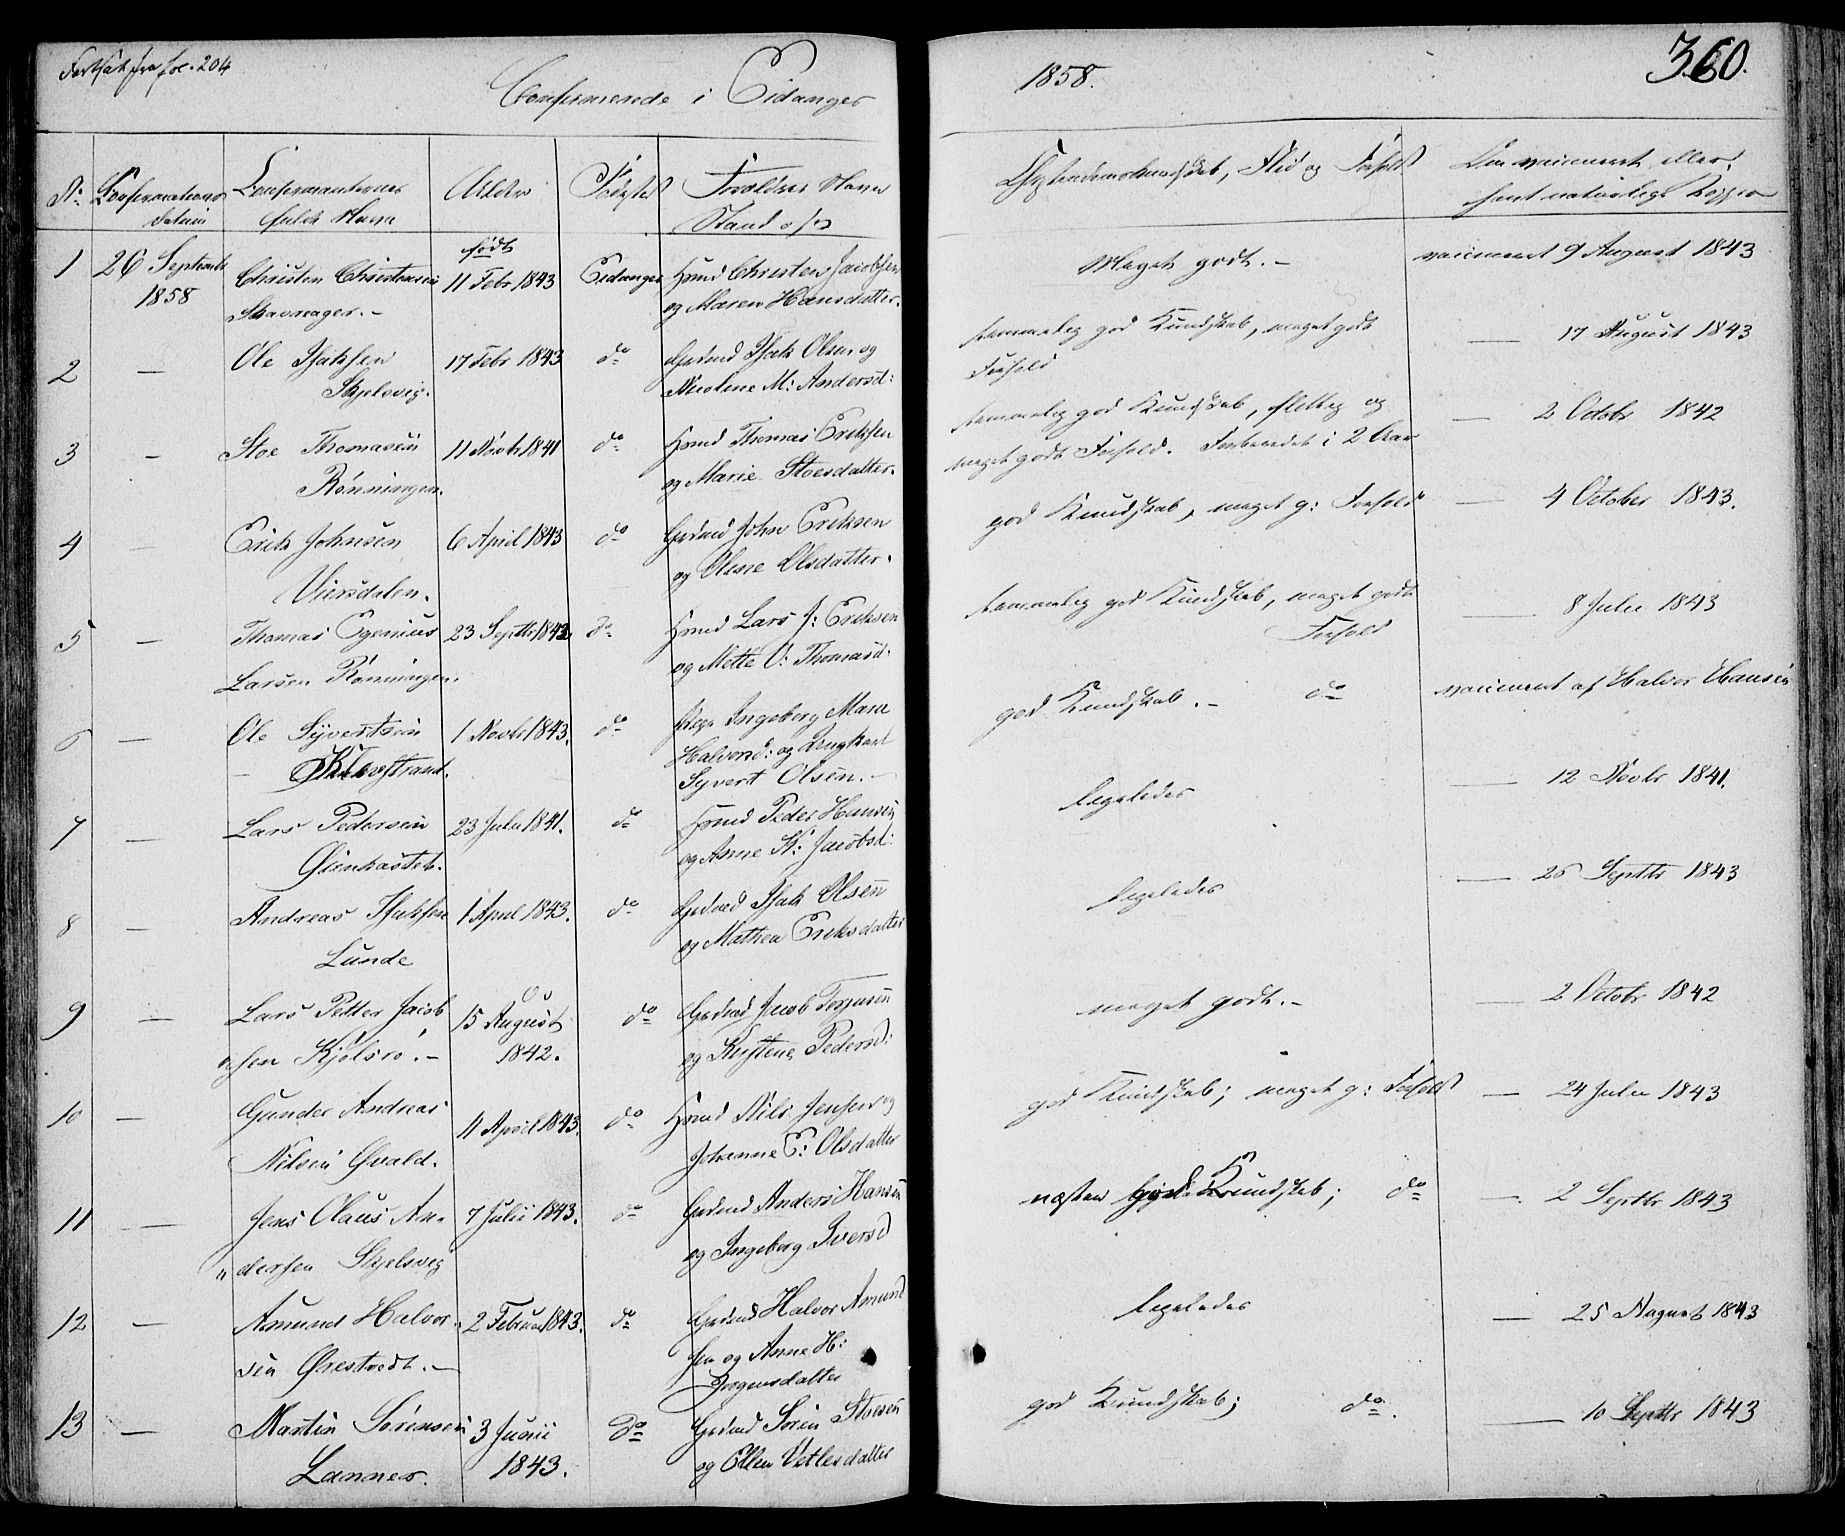 Fortsat fra fol. 204
Confirmerede i Eidanger
1858.
360.
No. Confirmationsdatum
Confirmanternes fulde Navn
Alder
Fødested
Forældres Navn Stand o s v
Christendomskundskab, Flid og Forhold
Om vaccineret eller havt naturlige Kopper
1 26 Septembr 1858 Christen Christensen Skavrager. – født 11 Febr 1843 Eidanger Hmd Christen Jacobsen og Maren Hansdatter. Meget godt. – vaccineret 9 August 1843
2 — Ole Isaksen Skjelsvig. 17 Febr 1843 do Grdmd Isak Olsen og Nicoline M: Andersd: temmelig god Kundskab, meget godt Forhold — 17 August 1843
3 — Stoe Thomasen Rønningen. 11 Novbr 1841 do Hmd Thomas Eriksen og Marie Stoesdatter. temmelig god Kundskab, flittig og meget godt Forhold. Forberedet i 2 Aar — 2 Octobr 1842
4 — Erik Johnsen Viersdalen. 6 April 1843 do Grdmd John Eriksen og Olene Olsdatter. god Kundskab, meget g: Forhold — 4 October 1843.
5 — Thomas Egenius Larsen Rønningen. 23 Septbr 1842 do Hmd Lars J: Eriksen og Mette V: Thomasd: temmelig god Kundskab, meget godt Forhold — 8 Julii 1843
6 — Ole Syvertsen Klevstrand. 1 Novbr 1843. do Pige Ingeborg Marie Halvorsd: og Ungkarl Syvert Olsen. – god Kundskab. – do vaccineret af Halvor Hansen
7 — Lars Pedersen Øienkasteh. 23 Julii 1841. do Hmd Peder Hansen og Anne K: Jacobsd: ligeledes — 12 Novbr 1841.
8 — Andreas Isaksen Lunde 1 April 1843. do Grdmd Isak Olsen og Mathea Eriksdatter ligeledes — 26 Septbr 1843
9 — Lars Petter Jacobsen Kjølsrø. – 15 August 1842. do Grdmd Jacob Torjusen og Kirstene Pedersd: meget godt. – — 2 Octobr 1842
10 — Gunder Andreas Nilsen Ørvald. 11 April 1843. do Hmd Nils Jensen og Johanne E: Olsdatter god Kundskab; meget g: Forhold — 24 Julii 1843
11 — Jens Olaus Andersen Skjelsvig 7 Julii 1843. do Grdmd Anders Hansen og Ingeborg Iversd næsten god Kundskab; do — 2 Septbr 1843
12 — Amund Halvorsen Ørestvedt. – 2 Februar 1843. do Grdmd Halvor Amundsen og Anne H: Jørgensdatter ligeledes — 25 August 1843
13 — Martin Sørensen Lanner. 3 Junii 1843. do Grdmd Søren Stoesen og Ellen Vetlesdatter god Kundskab; do — 10 Septbr 1843